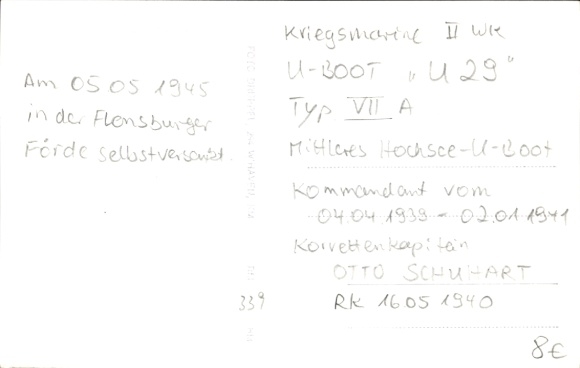 Am 05 05 1945
in der Flensburger
Förde selbstversenkt.
Kriegsmarine II WK
U-BOOT „U 29"
Typ VII A
Mittleres Hochsee-U-Boot
Kommandant vom
04.04 1939 - 02.01 1941
Korvettenkapitän
OTTO SCHUHART
RK 16 05 1940
339
8€